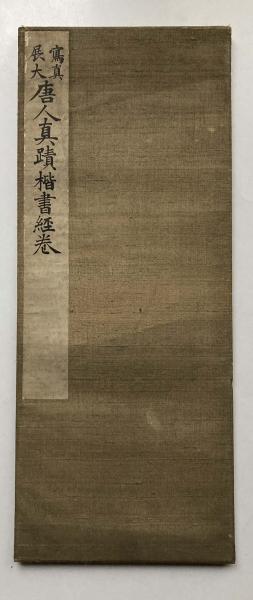 寫真
展大
唐人真蹟楷書經卷